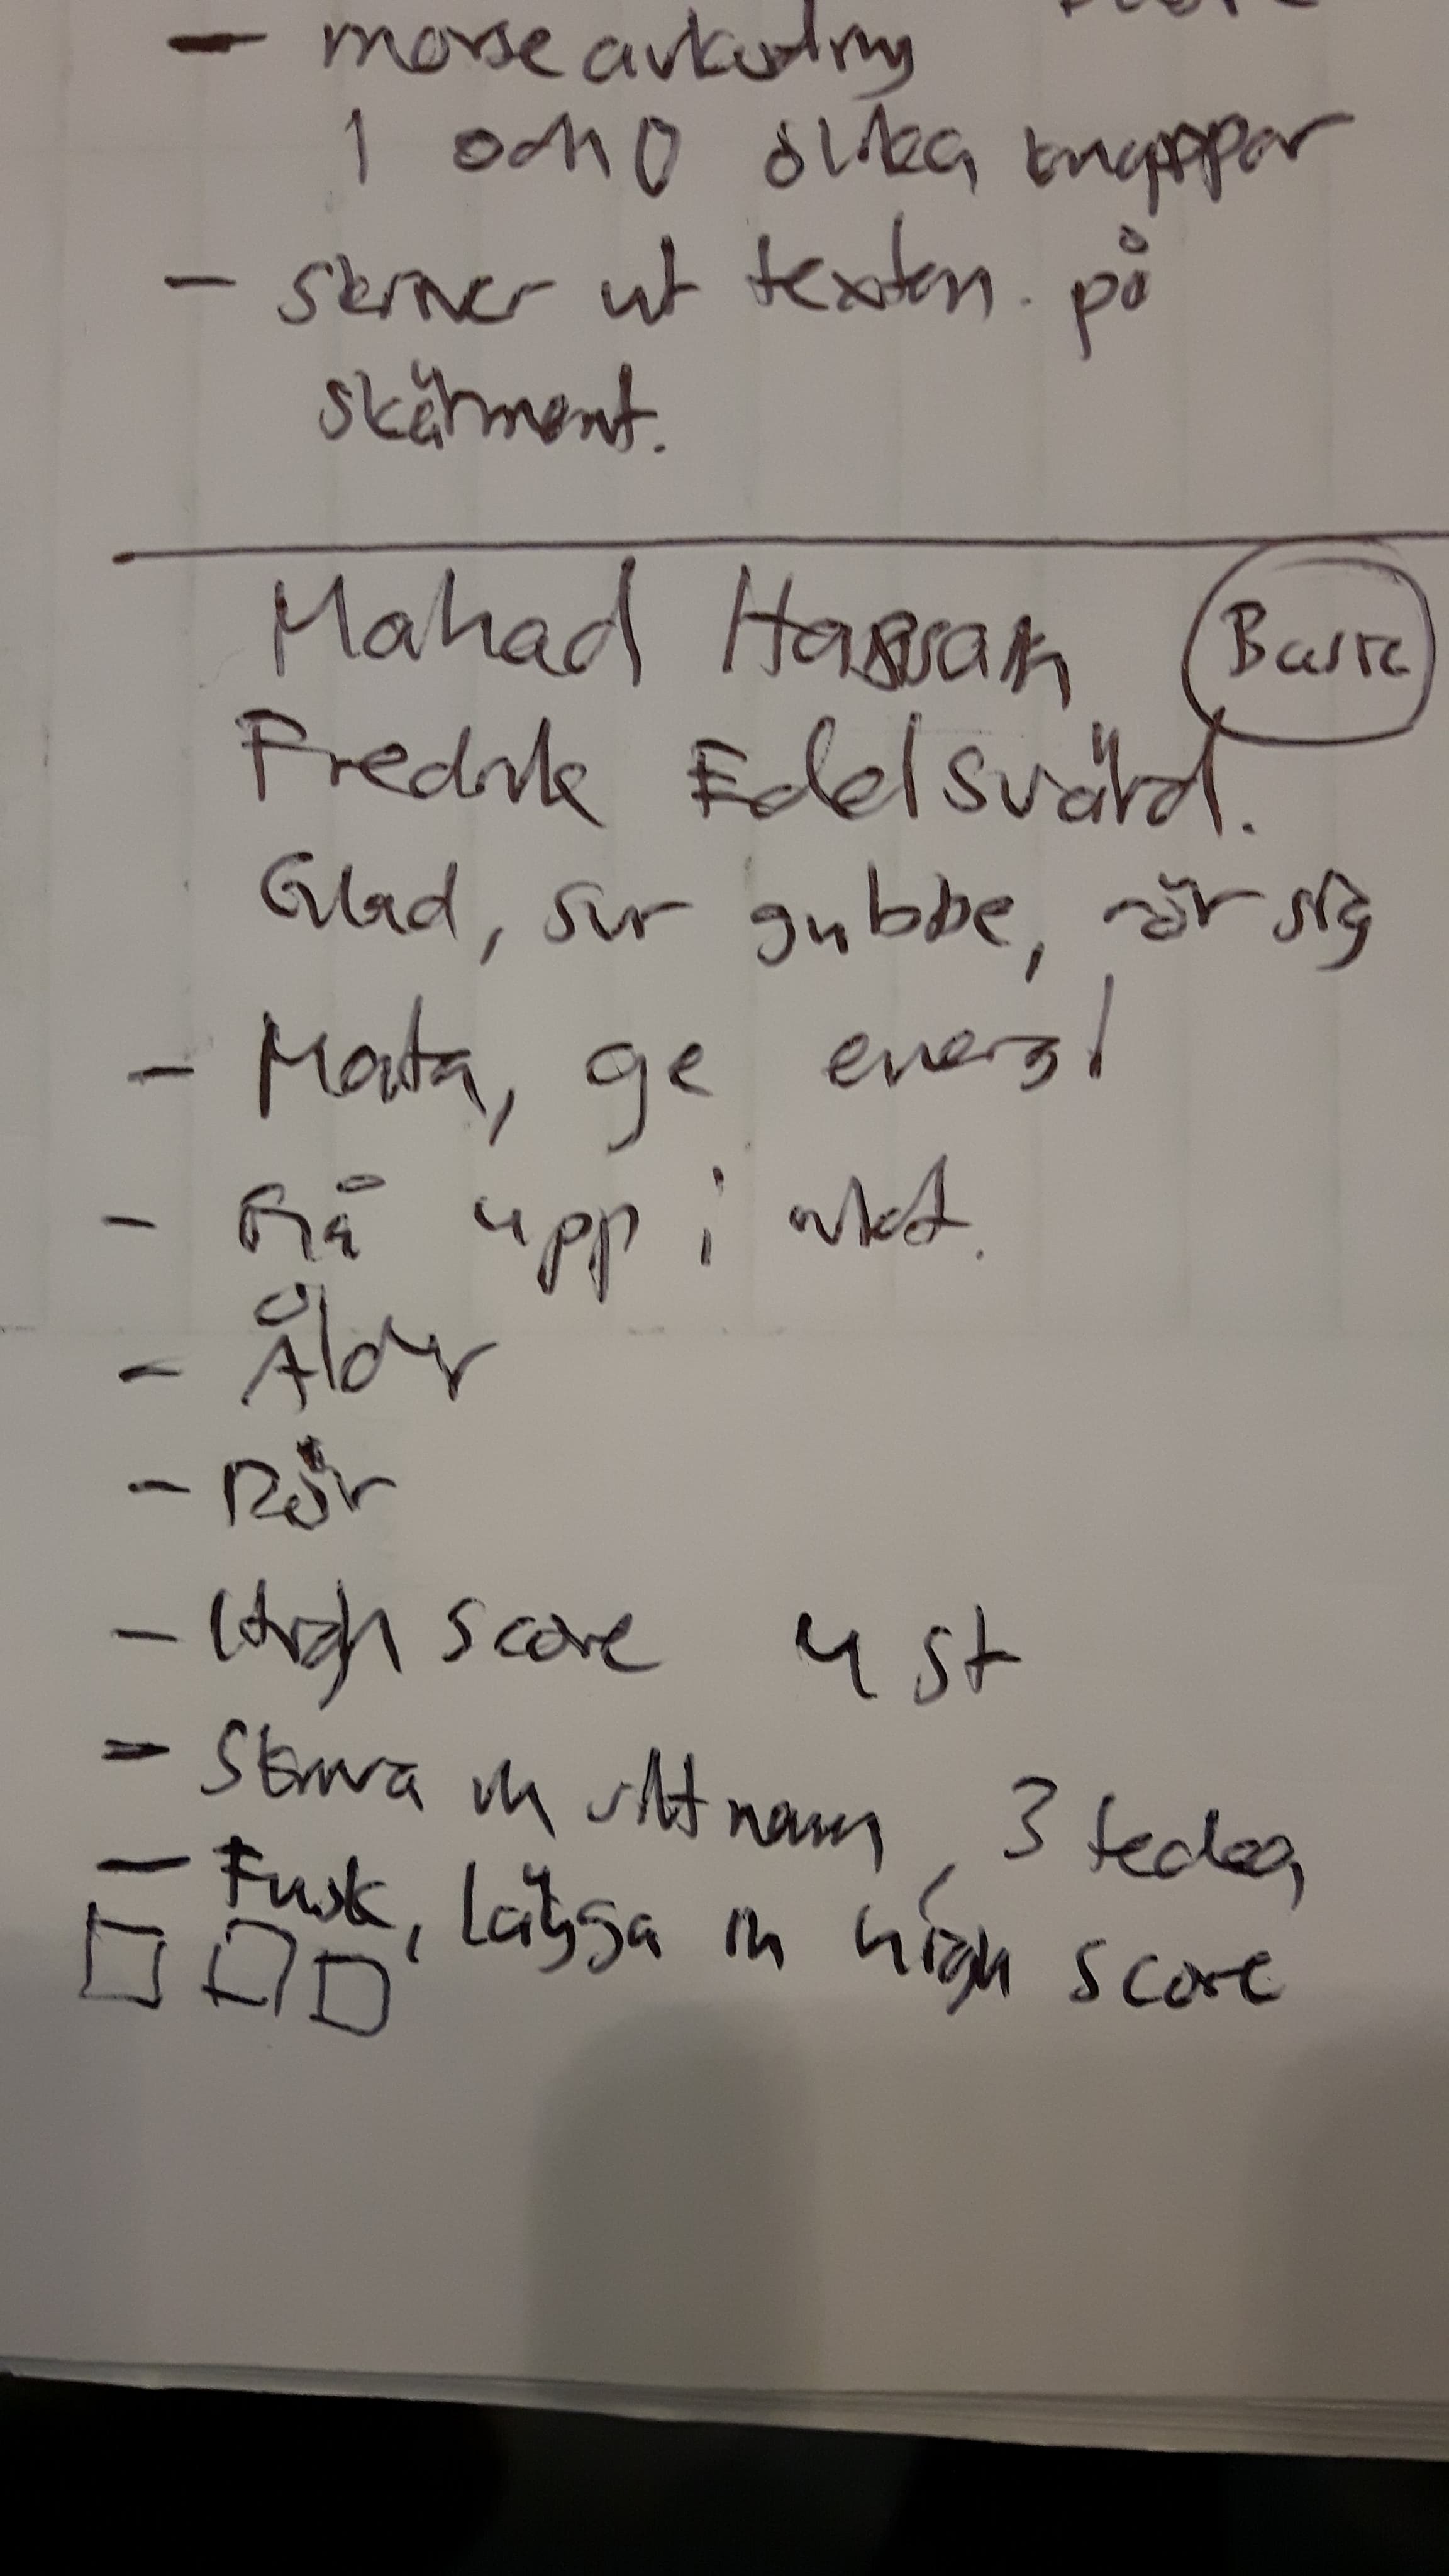 - morseavkodning
1 och 0 olika knappar
- skriver ut texten på
skärment.
Mahad Hassan
Basic
Fredrik Edelsvärd.
Glad, sur gubbe, rör sig
- Mata, ge energi
- Gå upp i vikt.
- Ålder
- Dör
- High score 4 st
- Skriva in sitt namn, 3 tecken
- Fusk, lägga in high score